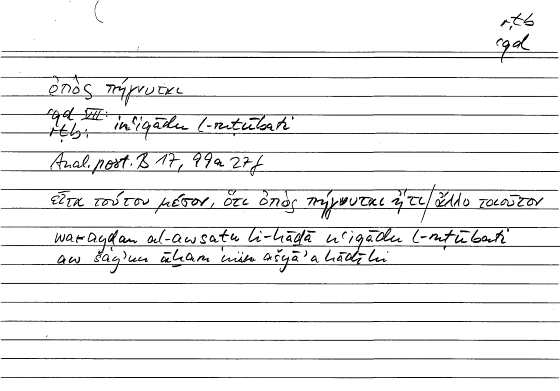 rṭb
ʿqd
ὀπὸς πήγνυται
ʿqd VII:
rṭb: inʿiqādu l-ruṭūbati
Anal. post. B 17, 99a 27f
εἶτα τούτου μέσον, ὅτι ὀπὸς πήγνυται ἤ τι ἄλλο τοιοῦτον
wa-ayḍan al-awsaṭu li-hāḏā nʿiqādu l-ruṭūbati
aw šayʾun āḫaru min ašyāʾa hāḏihi